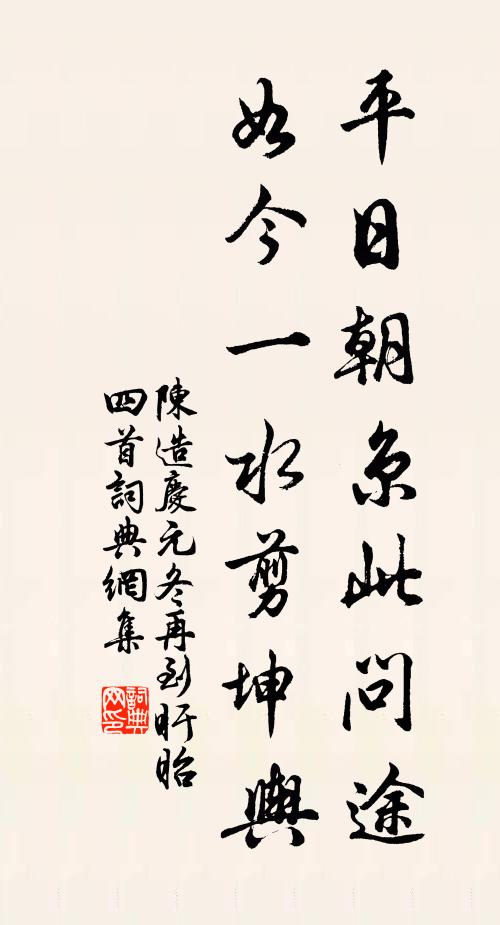 平日朝京此問途
如今一水剪坤輿
陳造慶元冬再到盱眙
四首詞典網集
詞典
网印